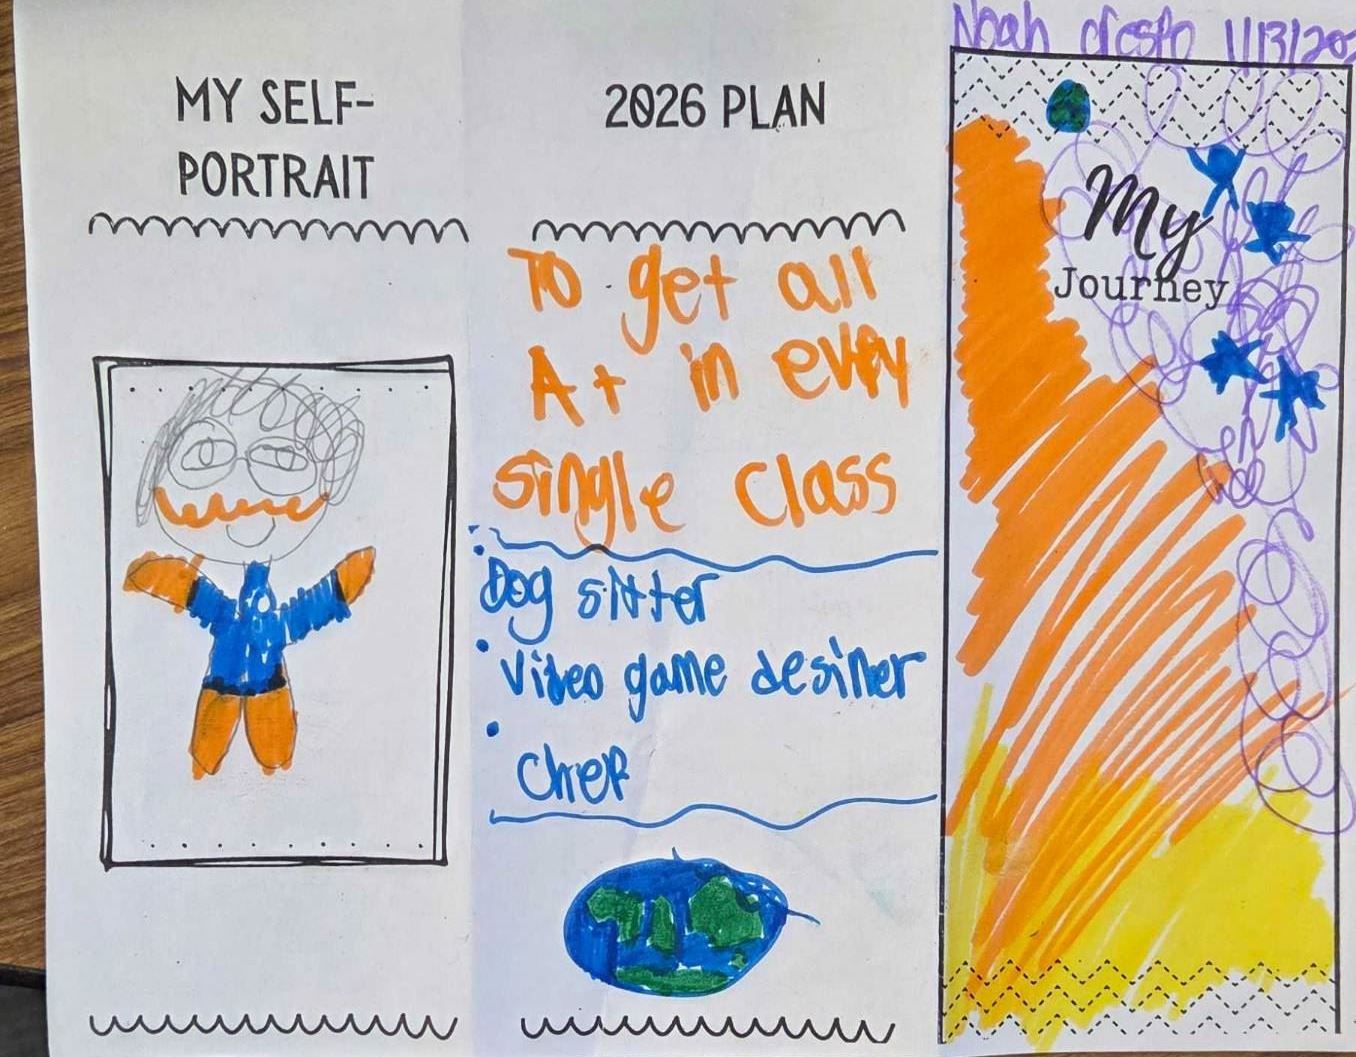 MY SELF-
PORTRAIT
2026 PLAN
To get all
A+ in every
single class
• Dog sitter
• Video game desiner
• Chef
Noah Crespo 1/13/202
My
Journey